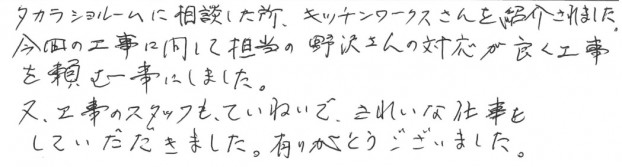 タカラショールームに相談した所、キッチンワークスさんを紹介されました。
今回の工事に関して担当の野沢さんの対応が良く工事
を頼む事にしました。
又、工事のスタッフも、ていねいで、きれいな仕事を
していただきました。有りがとうございました。